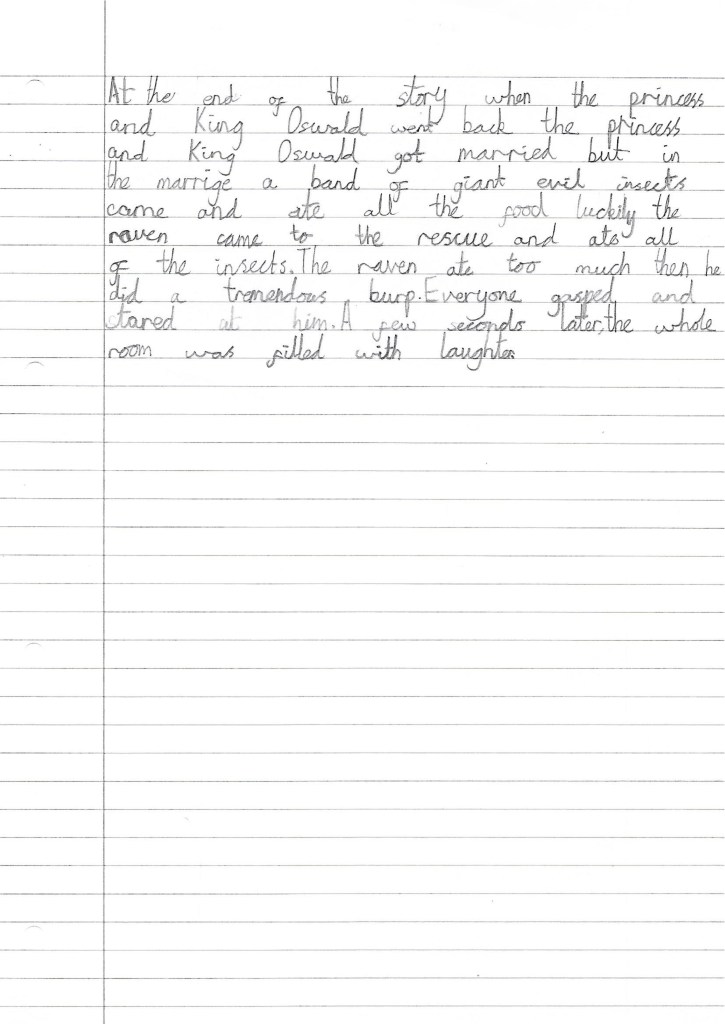 At the end of the story when the princess
and King Oswald went back the princess
and King Oswald got married but in
the marrige a band of giant evil insects
came and ate all the food luckily the
raven came to the rescue and ate all
of the insects. The raven ate too much then he
did a tremendous burp. Everyone gasped and
stared at him. A few seconds later, the whole
room was filled with laughter